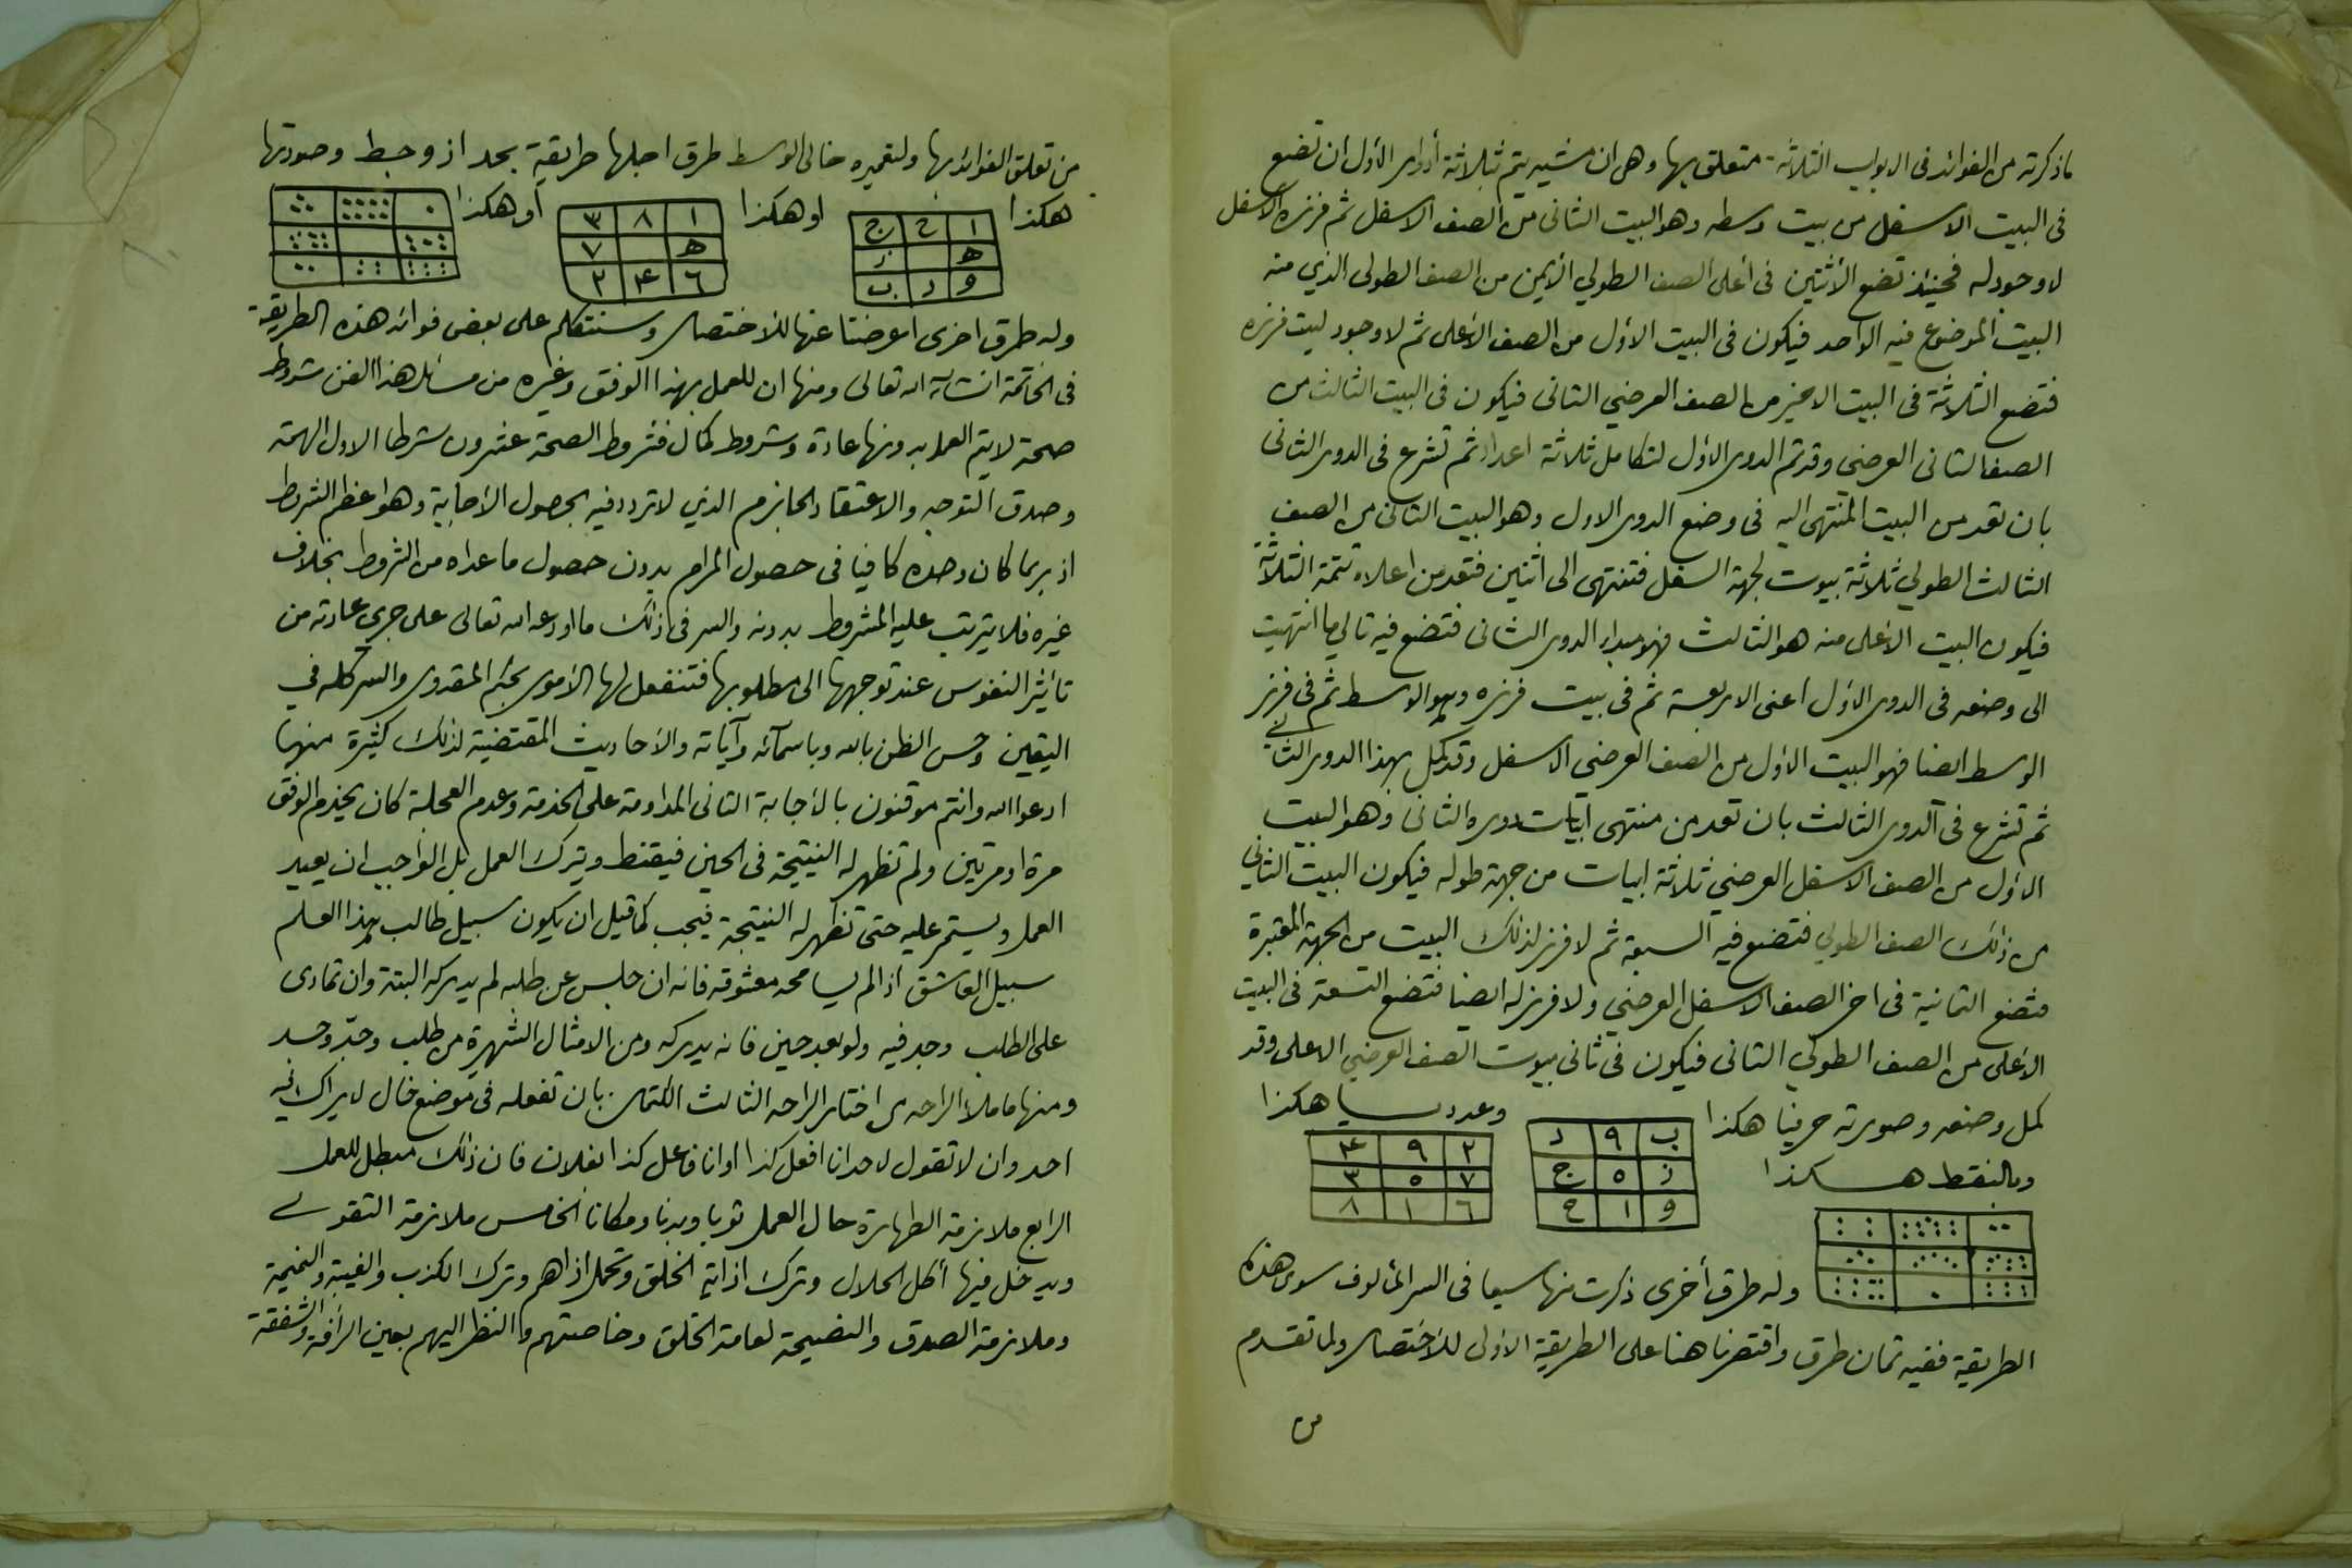 ماذكرته من الفوائد فى الابواب الثلاثة متعلق بها وهى ان مشيه يتم بثلاثة أدوار الأول ان تضع
فى البيت الاسفل من بيت وسطه وهو البيت الثانى من الصف الاسفل ثم فرزه الاسفل
لا وجود له فحينئذ تضع الأثنين فى أعلى الصف الطولي الأيمن من الصف الطولى الذي منه
البيت الموضوع فيه الواحد فيكون فى البيت الأول من الصف الأعلى ثم لا وجود لبيت فرزه
فتضع الثلاثة فى البيت الاخير من الصف العرضي الثانى فيكون فى البيت الثالث من
الصف الثانى العرضي وقد تم الدور الأول لتكامل ثلاثة اعداد ثم تشرع فى الدور الثانى
بان تعد من البيت المنتهى اليه فى وضع الدور الاول وهو البيت الثانى من الصف
الثالث الطولي ثلاثة بيوت لجهة السفل فتنتهى الى اثنين فتعد من اعلاه تتمة الثلاثة
فيكون البيت الأعلى منه هو الثالث فهو مبداء الدور الثانى فتضع فيه تالي ما انتهيت
الى وضعه فى الدور الأول اعنى الاربعة ثم فى بيت فرزه وهو الوسط ثم فى فرز
الوسط ايضا فهو البيت الأول من الصف العرضي الاسفل وقد كمل بهذا الدور الثانى
ثم تشرع فى الدور الثالث بان تعد من منتهى ابيات دوره الثانى وهو البيت
الاول من الصف الاسفل العرضي ثلاثة ابيات من جهة طوله فيكون البيت الثاني
من ذلك الصف الطولي فتضع فيه السبعة ثم لا فرز لذلك البيت من الجهة المعتبرة
فتضع الثمانية فى اخر الصف الاسفل العرضي ولا فرز له ايضا فتضع التسعة فى البيت
الأعلى من الصف الطولي الثانى فيكون فى ثانى بيوت الصف العرضي الاعلى وقد
كمل وضعه وصورته حرفيا هكذا
ب ٩ د
ز ٥ ج
و ١ ح
وعدديا هكذا
٢ ٩ ۴
٧ ٥ ٣
٦ ١ ٨
وبالنقط هكذا
وله طرق أخرى ذكرت منها سبعا فى السر المألوف سوى هذه
الطريقة ففيه ثمان طرق واقتصرنا هنا على الطريقة الأولى للاختصار ولما تقدم
من
من تعلق الفوائد بها ولتعميره خالى الوسط طرق اجلها طريقة بجد از وحبط وصورتها
هكذا
ا ح ج
ه ز
و د ب
او هكذا
١ ٨ ٣
ه ٧
٦ ۴ ٢
أو هكذا
وله طرق اخرى اعرضنا عنها للاختصار وسنتكلم على بعض فوائد هذه الطريقة
فى الخاتمة انشاء الله تعالى ومنها ان للعمل بهذا الوفق وغيره من مسائل هذا الفن شروط
صحة لا يتم العمل بدونها عادة وشروط كمال فشروط الصحة عشرون شرطا الاول الهمة
وصدق التوجه والاعتقاد الجازم الذي لا تردد فيه بحصول الأجابة وهو اعظم الشروط
اذ ربما كان وحده كافيا فى حصول المرام بدون حصول ما عداه من الشروط بخلاف
غيره فلا يترتب عليه المشروط بدونه والسر فى ذلك ما اودعه الله تعالى على جري عادته من
تأثير النفوس عند توجهها الى مطلوبها فتنفعل لها الأمور بحكم المقدور والسر كله في
اليقين وحسن الظن بالله وباسمآئه وآياته والأحاديث المقتضية لذلك كثيرة منها
ادعوا الله وانتم موقنون بالأجابة الثانى المداومة على الخدمة وعدم العجلة كان يخدم الوفق
مرة او مرتين ولم تظهر له النتيجة فى الحين فيقنط ويترك العمل بل الواجب ان يعيد
العمل ويستمر عليه حتى تظهر له النتيجة فيجب كما قيل ان يكون سبيل طالب هذا العلم
سبيل العاشق اذا لم يسامحه معشوقه فانه ان جلس عن طلبه لم يدركه البتة وان تمادى
على الطلب وجد فيه ولو بعد حين فانه يدركه ومن الامثال الشهيرة من طلب وجدّ وجد
ومنها ما ملأ الراحه من اختار الراحه الثالث الكتمان بان تفعله فى موضع خال لا يراك فيه
احد وان لا تقول لاحد انا افعل كذا او انا فاعل كذا بفلان فان ذلك مبطل للعمل
الرابع ملازمة الطهارة حال العمل ثوبا وبدنا ومكانا الخامس ملازمة التقوى
ويدخل فيها أكل الحلال وترك اذاية الخلق وتحمل اذاهم وترك الكذب والغيبة والنميمة
وملازمة الصدق والنصيحة لعامة الخلق وخاصتهم والنظر اليهم بعين الرأفة والشفقة